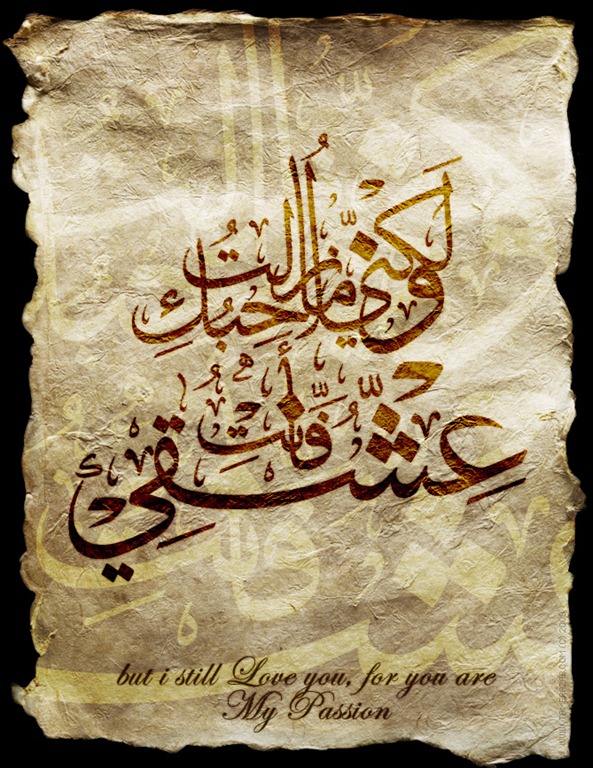 ولكنّي مازلتُ احبُكِ
فأنتِ عِشقي
but i still Love you, for you are
My Passion